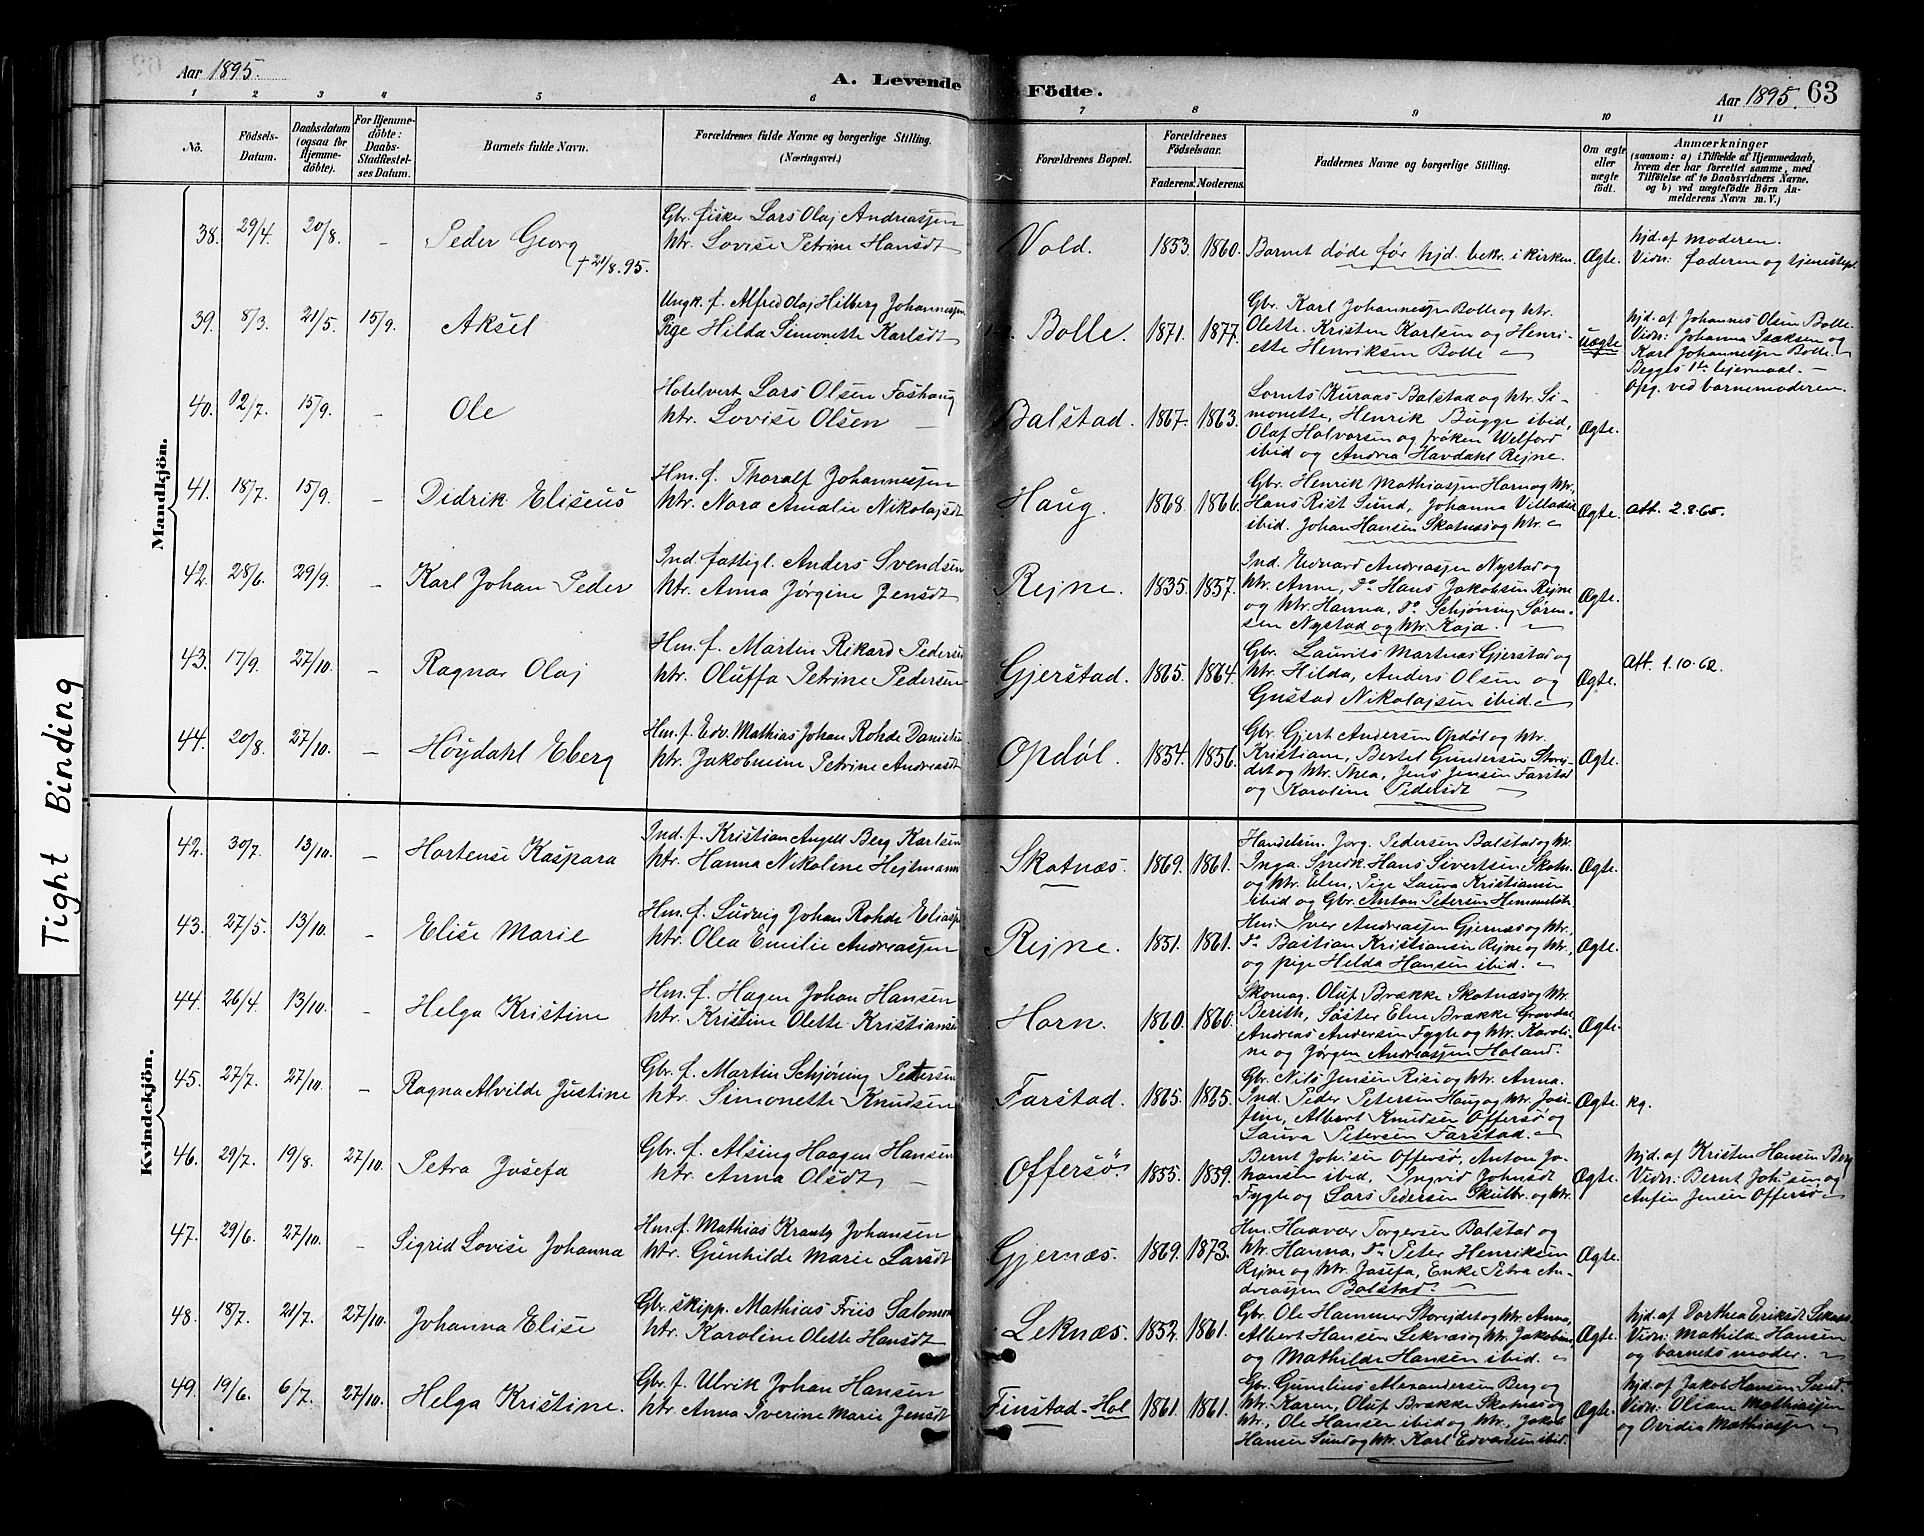 Aar 1895.
A. Levende Födte.
Aar 1895. 63
1 2 3 4 5 6 7 8 9 10 11
No.
Födsels-Datum.
Daabsdatum (ogsaa for Hjemme-döbte).
For Hjemme-döbte: Daabs-Stadfæstel-ses Datum.
Barnets fulde Navn.
Forældrenes fulde Navne og borgerlige Stilling.
(Næringsvei.)
Forældrenes Bopæl.
Forældrenes Födselsaar.
Faderens. Moderens.
Faddernes Navne og borgerlige Stilling.
Om ægte eller uægte födt.
Anmærkninger
(saasom: a) i Tilfælde af Hjemmedaab, hvem der har forrettet samme, med Tilföielse af to Daabsvidners Navne, og b) ved uægtefödte Börn An-melderens Navn m. V.)
Tight Binding
Mandkjön.
38. 29/4. 20/8. - Peder Georg
+ 21/8. 95.
Gbr. fisker Lars Olaj Andreassen
htr. Lovise Petrine Hansdt
Vold. 1853. 1860.
Barnet døde før hjd. bekr. i kirken.
Ægte.
hjd. af moderen.
Vidn: faderen og tjenestepi.
39. 8/3. 21/5. 15/9. Aksel
Ungk. f. Alfred Olaj Hilberg Johannessen
Pige Hilda Simonette Karlsdt
Bolle. 1871. 1877.
Gbr. Karl Johannessen Bolle og htr.
Olette. Kristen Karlsen og Henri-
ette Henriksen Bolle
uægte
hjd. af Johannes Olsen Bolle.
Vidn: Johanna Isaksen og
Karl Johannessen Bolle.
Begges 1ste lejermaal. -
Opg. ved barnemoderen.
40. 12/7. 15/9. - Ole
Hotelvert Lars Olsen Fashaug
htr. Lovise Olsen
Balstad. 1867. 1863.
Lornts Kuraas Balstad og htr. Si-
monette, Henrik Bugge ibid,
Olaf Halvorsen og frøken Welford
ibid og Andrea Havdahl Rejne.
Ægte.
41. 18/7. 15/9. - Didrik Eliseus
Hm. f. Thoralf Johannessen
htr. Nora Amalie Nikolajsdt
Haug. 1868. 1866.
Gbr. Henrik Mathiassen Horn og htr.,
Hans Rist Sund, Johanna Villadsen
ibid. Johan Hansen Skotnæs og htr.
Ægte. Att. 2.8.65.
42. 28/6. 29/9. - Karl Johan Peder
Ind. fattigl. Anders Svendsen
htr. Anna Jørgine Jensdt
Rejne. 1835. 1857.
Ind. Edvard Andreassen Nystad og
htr. Anne, do Hans Jakobsen Rejne
og htr. Hanna, do Schjøning Søren-
sen Nystad og htr. Kaja.
Ægte.
43. 17/9. 27/10. - Ragnar Olaj
Hm. f. Martin Rikard Pedersen
htr. Oluffa Petrine Pedersen
Gjerstad. 1865. 1864.
Gbr. Laurits Martnas Gjerstad og
htr. Hilda, Anders Olsen og
Gustad Nikolajsen ibid.
Ægte. Att. 1.10.62.
44. 20/8. 27/10. - Høydahl Eberg
Hm. f. Edv. Mathias Johan Rohde Danielsen
htr. Jakobmine Petrine Andreasdt
Opdøl. 1854. 1856.
Gbr. Gjert Andersen Opdøl og htr.
Kristiane, Bertel Gundersen Storej-
det og htr. Thea, Jens Jensen Farstad
og Karoline Pedersdt
Ægte.
Kvindekjön.
42. 30/7. 13/10. - Hortense Kaspara
Ind. f. Kristian Angell Berg Karlsen
htr. Hanna Nikoline Hejtmann
Skotnæs. 1869. 1861.
Handelsm. Jørg. Pedersen Balstad og htr.
Inga. Snedk. Hans Sivertsen Skotn.
og htr. Elen, Pige Laura Kristiansen
ibid og Gbr. Anton Petersen Himmelsti.
Ægte.
43. 27/5. 13/10. - Elise Marie
Hm. f. Ludvig Johan Rohde Eliassen
htr. Olea Emilie Andreassen
Rejne. 1851. 1861.
Hm. Iver Andreassen Gjernæs og htr.,
do Bastian Kristiansen Rejne og htr.,
og pige Helda Hansen ibid.
Ægte.
44. 26/4 13/10. - Helga Kristine
Hm. f. Hagen Johan Hansen
htr. Kristine Olette Kristiansen
Horn. 1860. 1860.
Skomag. Oluf Brække Skotnæs og htr.
Berith, Søster Elen Brække Gravdal,
Andreas Andersen Fygle og htr. Karoli-
ne og Jørgen Andreassen Holand.
Ægte.
45. 27/7. 27/10. - Ragna Alvilde Justine
Gbr. f. Martin Schjøning Petersen
htr. Simonette Knudsen
Farstad. 1865. 1865.
Gbr. Nils Jensen Risi og htr. Anna.
Ind. Peder Petersen Haug og htr. Josi-
fine, Albert Knudsen Offersø og
Laura Petersen Farstad.
Ægte. kg.
46. 29/7. 19/8. 27/10. Petra Josefa
Gbr. f. Alsing Haagen Hansen
htr. Anna Olsdt
Offersø. 1855. 1859.
Bernt Joh.sen Offersø, Anton Jo-
hansen ibid, Ingrid Johnsdt
Fygle og Lars Pedersen Skulbr. og htr.
Ægte.
hjd. af Kristen Hansen Berg
Vidn: Bernt Joh.sen og
Anfin Jensen Offersø
47. 29/6. 27/10. - Sigrid Lovise Johanna
Hm. f. Mathias Krantz Johansen
htr. Gunhilde Marie Larsdt
Gjernæs. 1869. 1873.
Hm. Haavar Torgersen Balstad og
htr. Hanna, do Peter Henriksen
Rejne og htr. Josefa, Enke Petra An-
dreassen Balstad.
Ægte.
48. 18/7. 21/7. 27/10. Johanna Elise
Gbr. skipp. Mathias Friis Salomon
htr. Karoline Olette Hansdt
Leknæs. 1852. 1861.
Gbr. Ole Hammer Storejdet og htr. Anna,
Albert Hansen Leknæs og htr. Jakobine,
og Mathilde Hansen ibid.
Ægte.
hjd. af Dorthea Eriksdt Leknæs
Vidn: Mathilde Hansen
og barnets moder.
49. 19/6. 6/7. 27/10. Helga Kristine.
Gbr. f. Ulrik Johan Hansen
htr. Anna Iverine Marie Jensdt
Finstad-Hol 1861. 1861.
Gbr. Gunelius Alexandersen Berg og
htr. Karen, Oluf Brække Skotnæs og
htr., Ole Hansen ibid og htr., Jakob
Hansen Sund og htr. Karl Edvardsen ibid.
Ægte.
hjd. af Jakob Hansen Sund.
Vidn: Oliane Mathiassen
og Ovidia Mathiassen